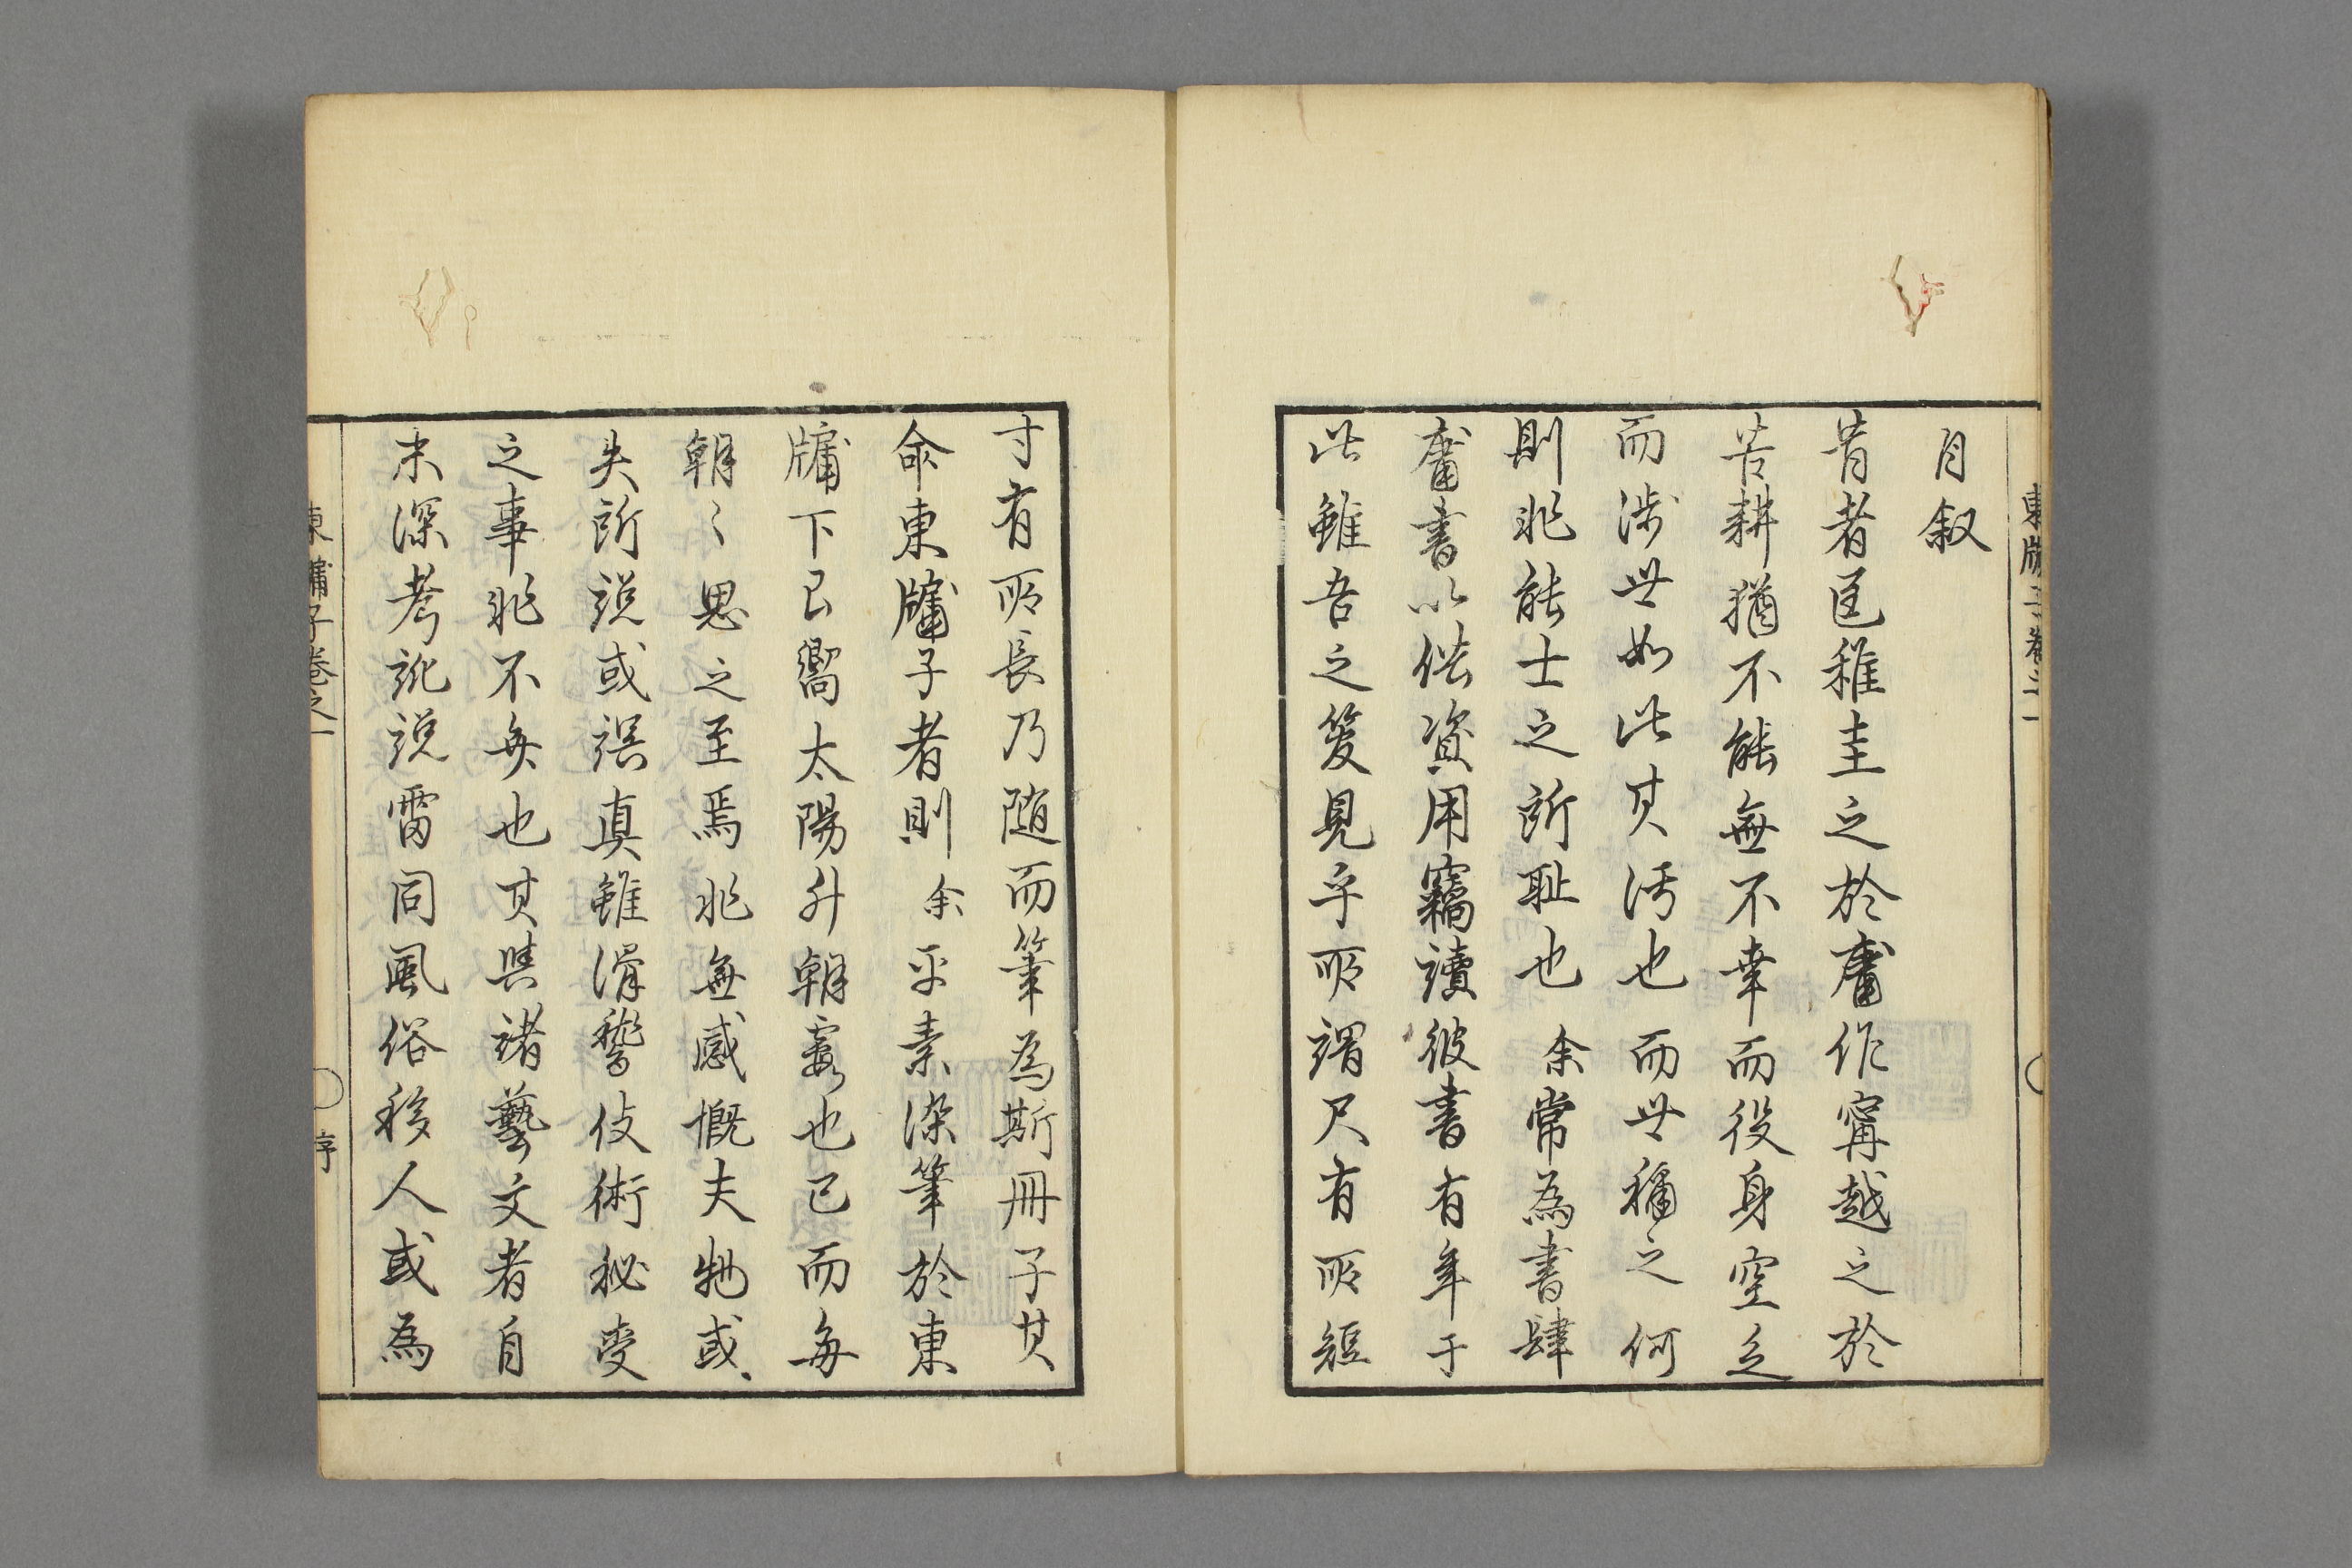 東牖子卷之一
自叙
昔者匡稚圭之於庸作甯越之於
苦耕猶不能無不幸而役身空乏
而渉世如此其汚也而世稱之何
則非能士之所耻也余常為書肆
庸書以供資用竊讀彼書有年于
此雖吾之管見乎所謂尺有所短
寸有所長乃随而筆為斯冊子其
命東牖子者則余平素染筆於東
牖下已嚮太陽升朝霞也已而毎
朝〻思之至焉非無感慨夫物或
失所説或誤真雖滑稽伎術秘変
之事非不無也其與諸藝文者自
未深考訛説雷同風俗移人或為
東牖子卷之一
序